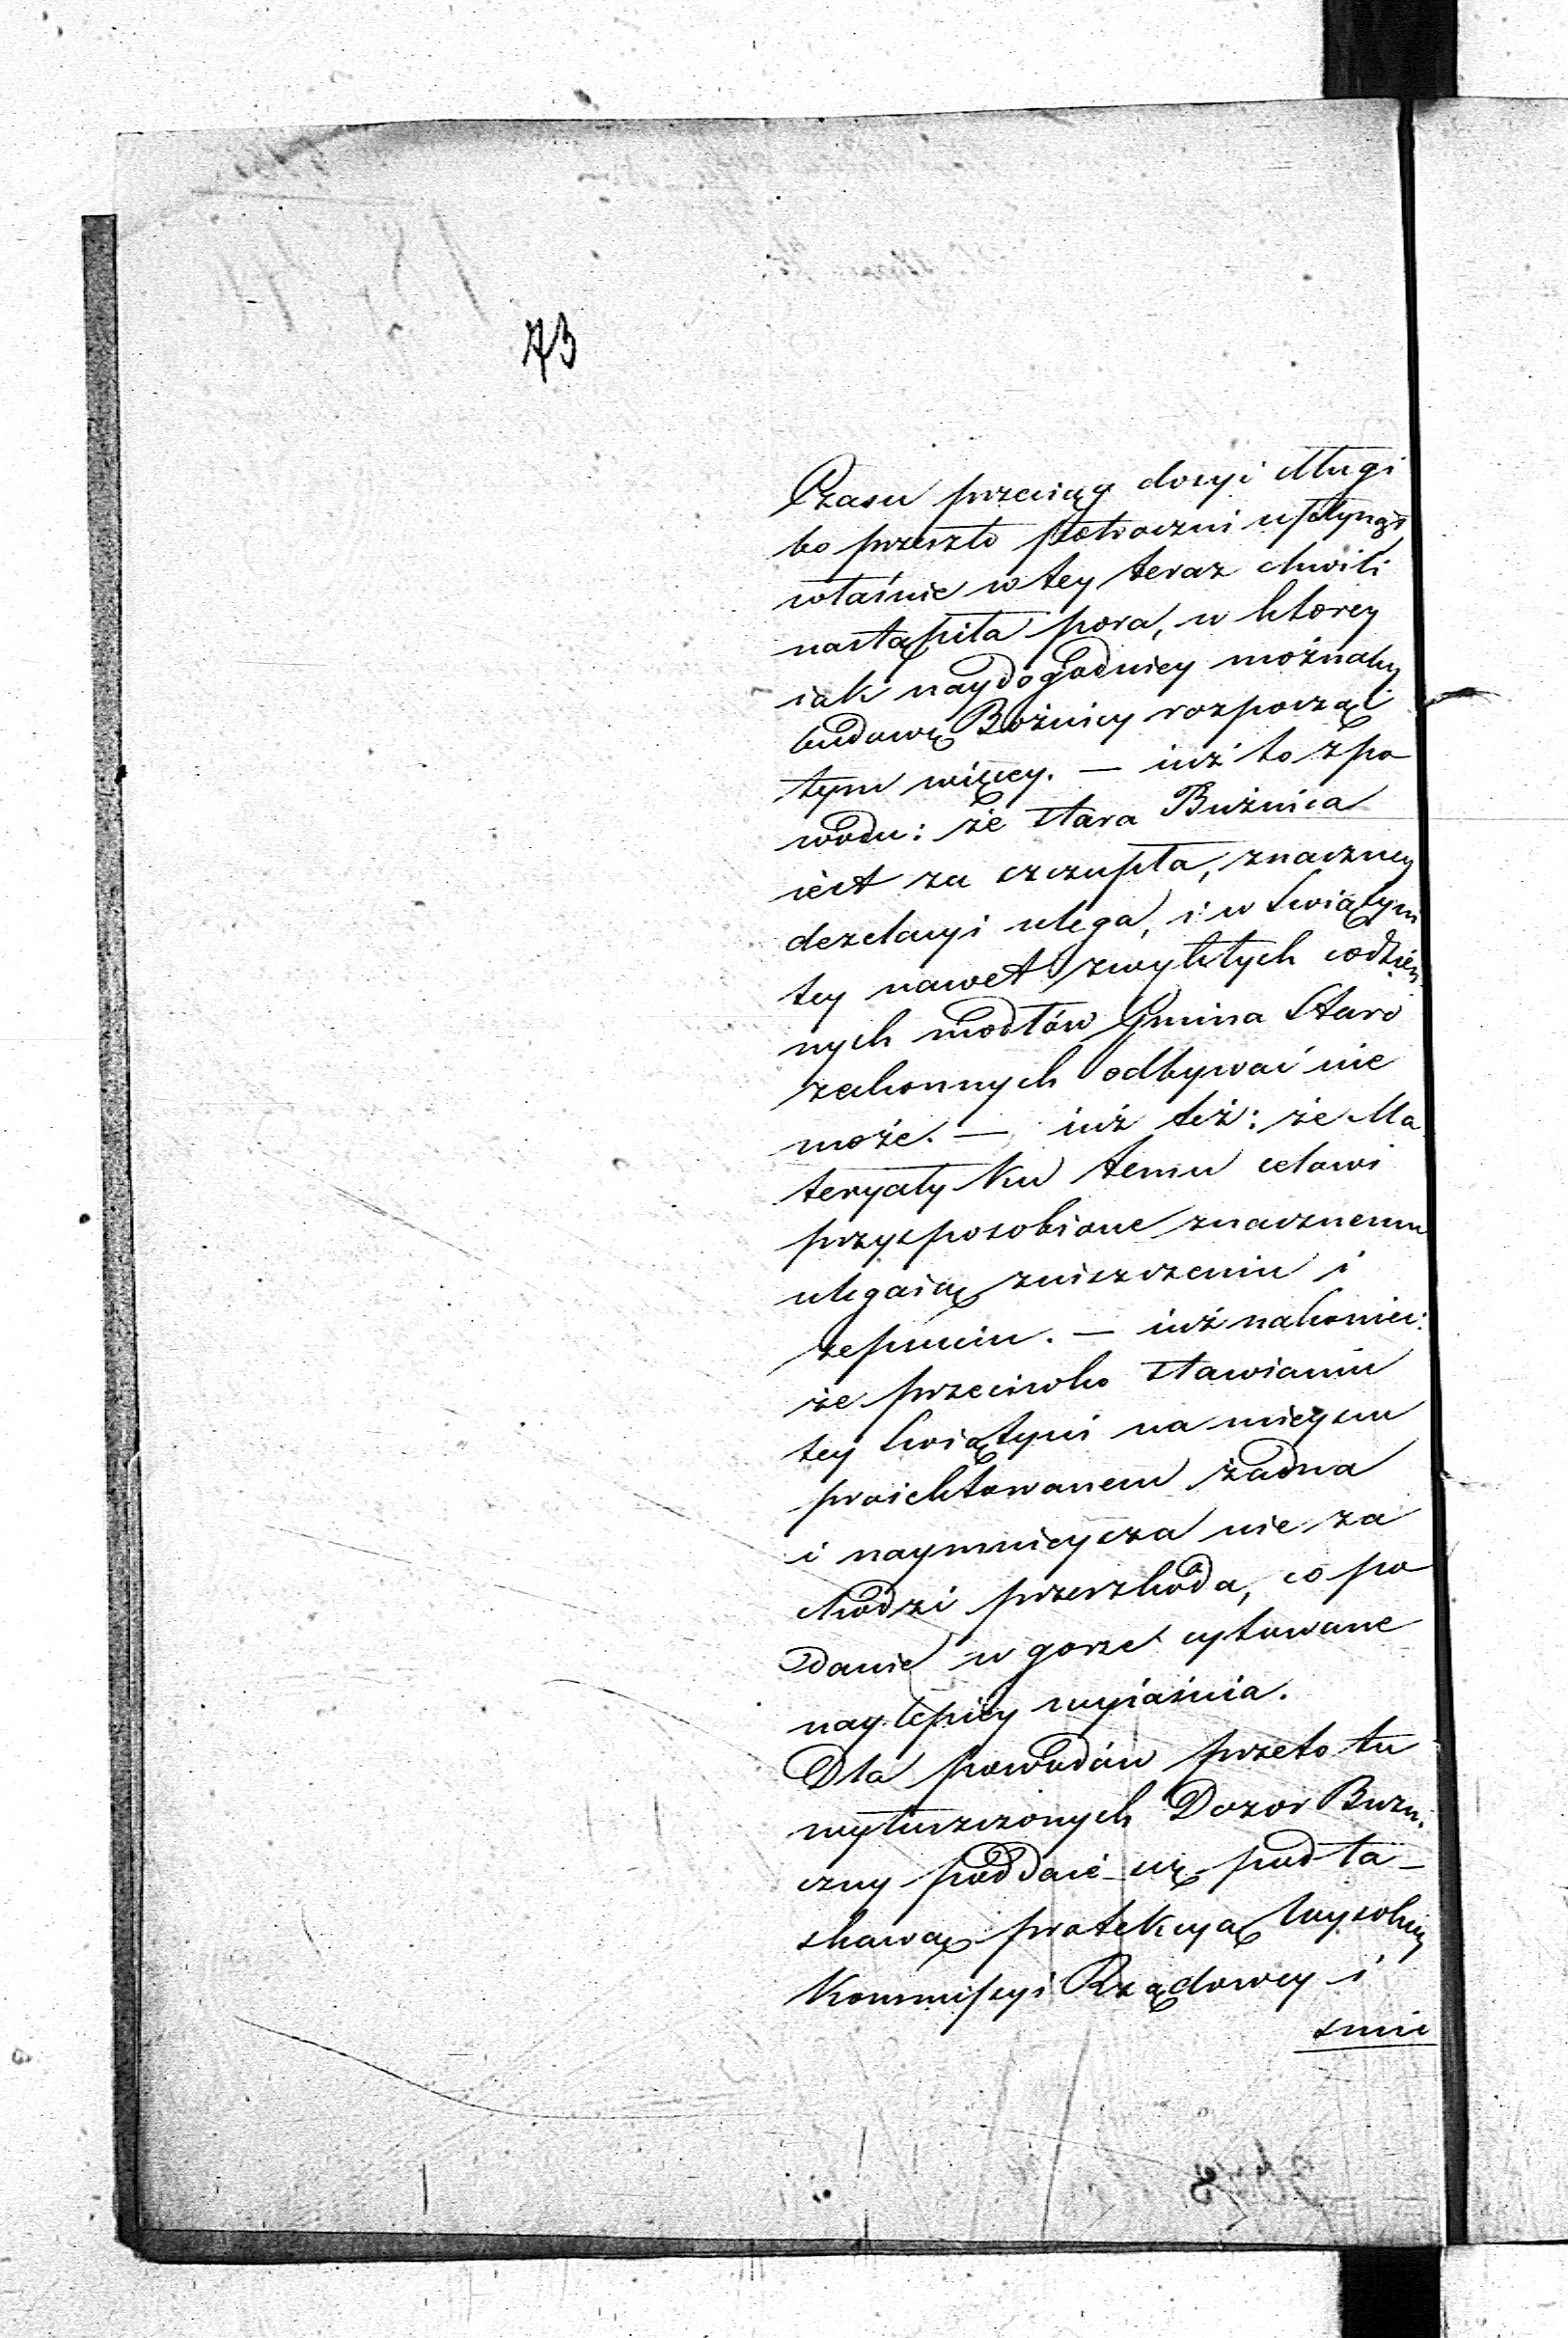 73
Czasu przeciąg dosyć długi
bo przeszło półroczni upłynął,
właśnie w tey teraz chwili
nastąpiła pora, w ktorey
iak naydogodniey możnaby
budowę Bóżnicy rozpocząć
tym więcey. — iuż to z po
wodu: że stara Bużnica
iest za szczupła, znaczney
dezelacyi ulega, i w Swiątyni
tey nawet zwykłych codzien
nych modłów Gmina Staro
zakonnych odbywać nie
może. — iuż też: że Ma
teryały ku temu celowi
przysposobione znacznemu
ulegaią zniszczeniu i
zepsuciu. — iuż nakoniec:
że przeciwko stawianiu
tey Swiątyni na mieyscu
proiektowanem żadna
i naymnieysza nie za
chodzi przeszkoda, co po
danie w gorze cytowane
naylepiey wyiaśnia.
Dla powodów przeto tu
wyłuszczonych Dozor Buzni
czny poddaie się pod ła_
skawą protekcyą Wysokiey
Kommissyi Rządowey i
smie